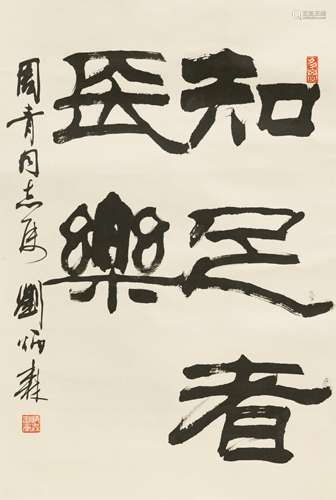 知足者
長樂
周青同志属 劉炳森